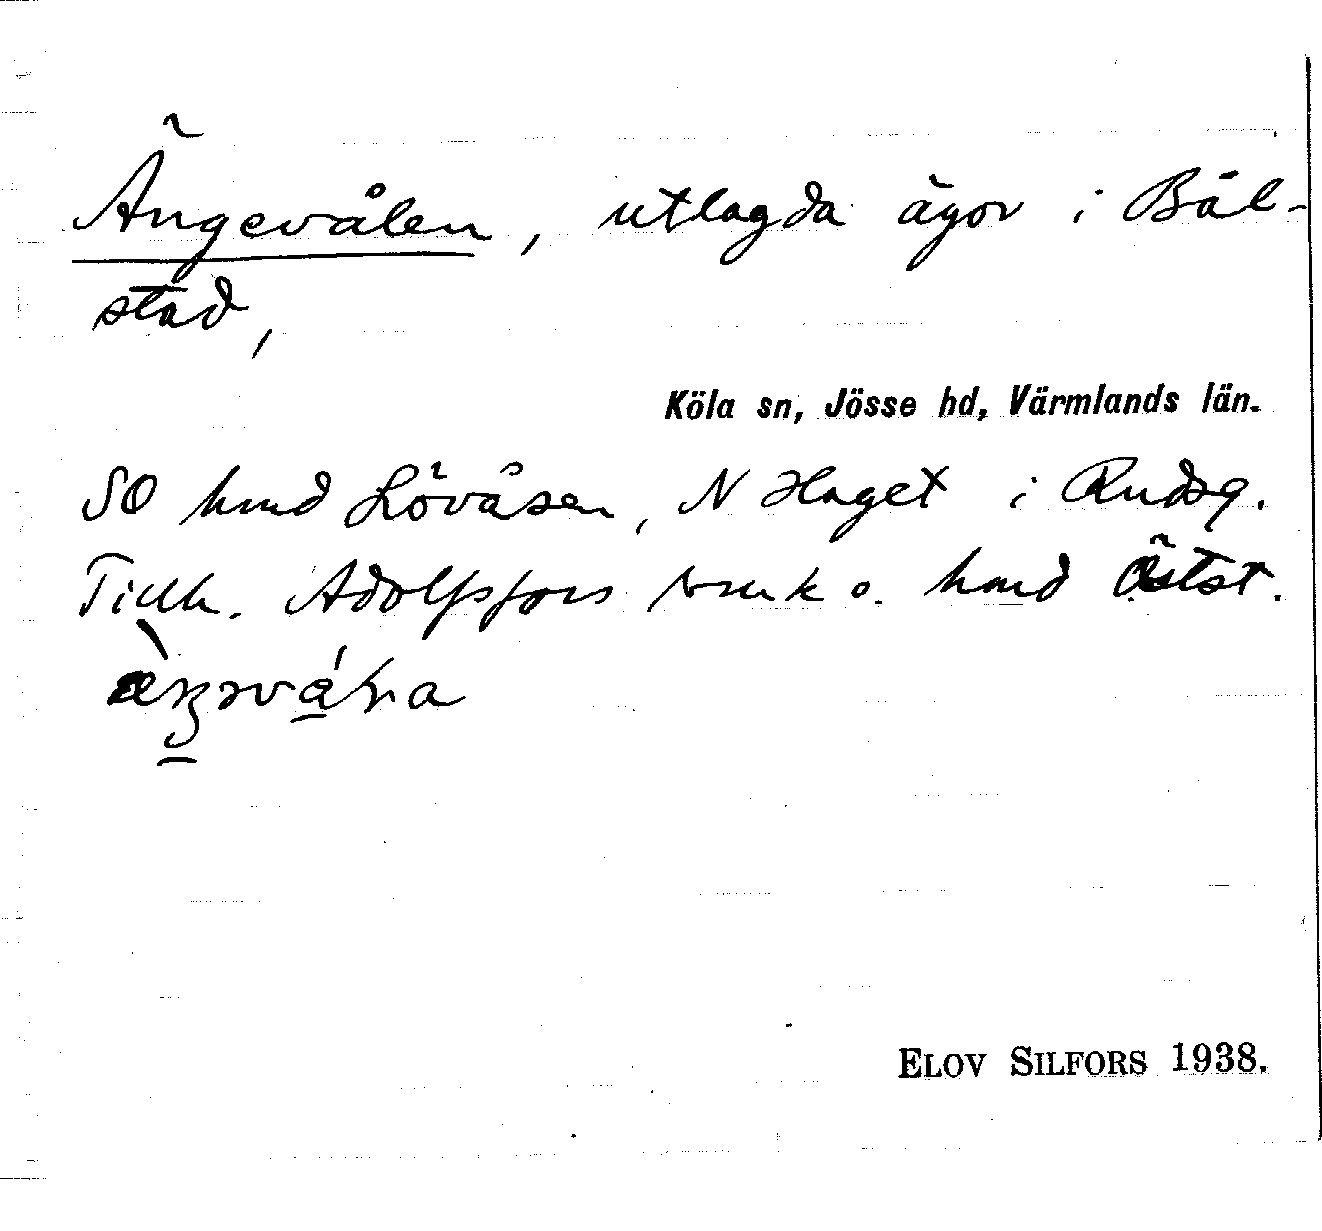 Ängevålen, utlagda ägor i Bäl-
stad,
Köla sn, Jösse hd, Värmlands län.
SO hmd Lövåsen, N Haget i Rudsg.
Tillh. Adolfsfors bruk o. hmd Östst.
ELOV SILFORS 1938.